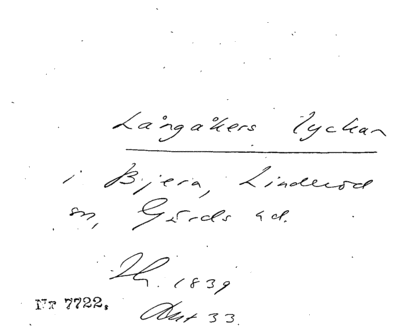 Långåkers lyckan
i Bjera, Linderöd
sn, Gärds hd.
1839
Akt 33.
Nr 7722.